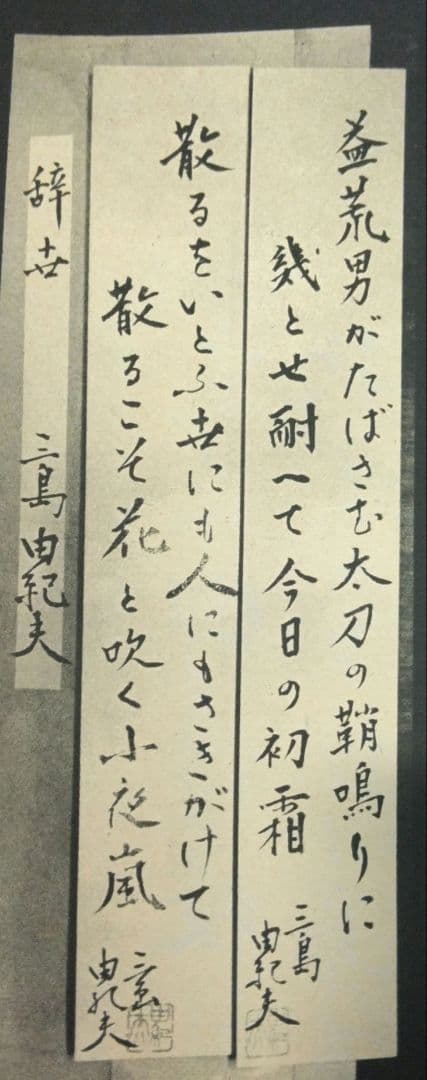 益荒男がたばさむ太刀の鞘鳴りに
幾とせ耐へて今日の初霜
三島
由紀夫
散るをいとふ世にも人にもさきがけて
散るこそ花と吹く小夜嵐
三島
由紀夫
辞世
三島由紀夫